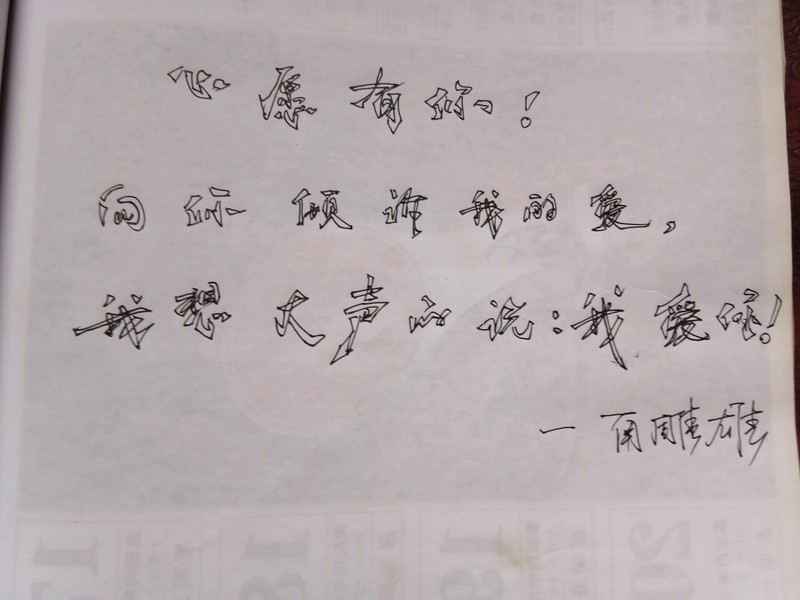 心愿有你!
向你倾诉我的爱,
我想大声的说:我爱你!
一 雕雄